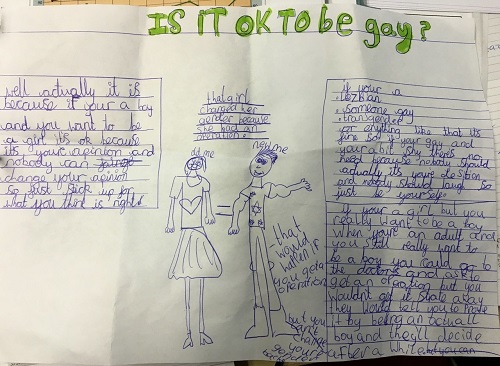 IS IT OK TO be gay?
well actually it is
because if your a boy
and you want to be
a girl its ok because
it's your opinion and
nobody can
change your opinion
so just stick up for
what you think is right
that girl
changed her
gender because
she had an
operation.
old me
new me
that
would
happen if
you got a
operation
but you
can't
change
your
gender
if your a
. Lezbian
. someone gay
. transgender
or anything like that its
fine so if your gay and
your a bit shy theres no
need because nobody should
actually it's your desision
and nobody should laugh so
just be yourself
if your a girl but you
really want to be a boy
when your an adult and
you still really want to
be a boy you could go to
the doctors and ask to
get an opration but you
wouldnt get it strate away
they would tell you to prove
it by being an actuall
boy and they'll decide
after a while